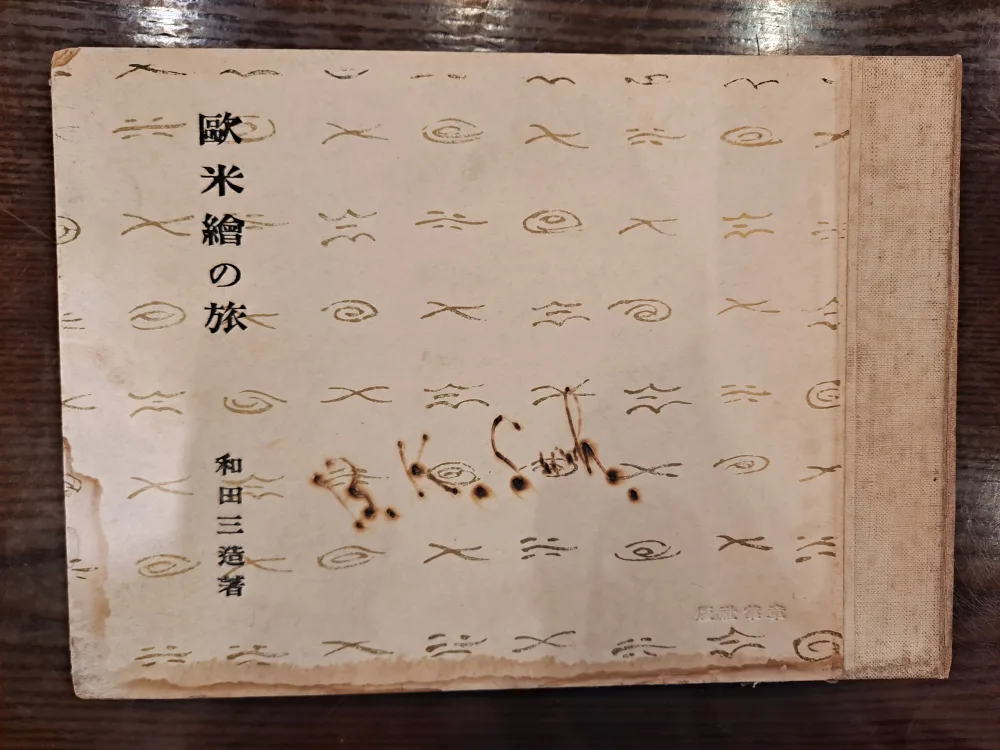 歐米繪の旅
和田三造著
B. K. Suh.